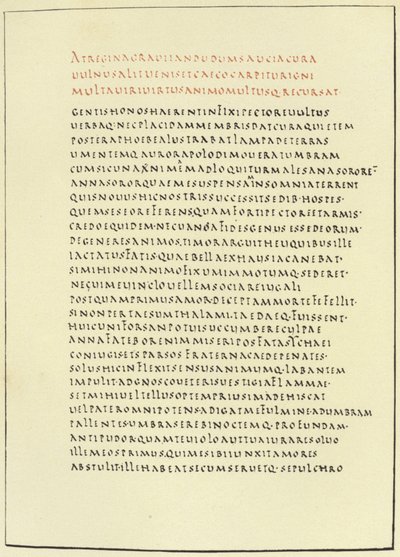 ATREGINAGRAUIIAMDUDUMSAUCIACURA
UULNUSALITUENISETCAECOCARPITURIGNI
MULTAUIRIUIRTUSANIMOMULTUSQ·RECURSAT·
GENTISHONOSHAERENTINFIXIPECTOREUULTUS
UERBAQ·NECPLACIDAMMEMBRISDATCURAQUIETEM
POSTERAPHOEBEALUSTRABATLAMPADETERRAS
UMENTEMQ·AURORAPOLODIMOUERATUMBRAM
CUMSICUNANIMEMADLOQUITURMALESANASOROREM
ANNASORORQUAEMESUSPENSAMINSOMNIATERRENT
QUISNOUUSHICNOSTRISSUCCESSITSEDIB·HOSPES·
QUEMSESEOREFERENS,QUAMFORTIPECTOREETARMIS·
CREDOEQUIDEM·NECUANAFIDESGENUSESSEDEORUM·
DEGENERESANIMOS,TIMORARGUITHEUQUIBUSILLE
IACTATUSFATIS·QUAEBELLAEXHAUSTACANEBAT·
SIMIHINONANIMOFIXUMIMMOTUMQ·SEDERET·
NECUIMEUINCLOUELLEMSOCIAREIUGALI
POSTQUAMPRIMUSAMOR·DECEPTAMMORTEFEFELLIT·
SINONPERTAESUMTHALAMI,TAEDAEQ·FUISSENT·
HUICUNIFORSANPOTUISUCCUMBERECULPAE
ANNAFATEBORENIMMISERIPOSTFATASYCHAEI
CONIUGISETSPARSOSFRATERNACAEDEPENATES·
SOLUSHICINFLEXITSENSUSANIMUMQ·LABANTEM
IMPULIT·ADGNOSCOUETERISUESTIGIAFLAMMAE·
SETMIHIUELTELLUSOPTEMPRIUSIMADEHISCAT
UELPATEROMNIPOTENS·ADIGATMEFULMINE·ADUMBRAM
PALLENTES·UMBRASEREBINOCTEMQ·PROFUNDAM·
ANTIPUDORQUAMTEUIOLOAUTTUAIURARESOLUO
ILLEMEOSPRIMUS,QUIMESIBIIUNXITAMORES
ABSTULIT·ILLEHABEATSECUMSERUETQ·SEPULCHRO